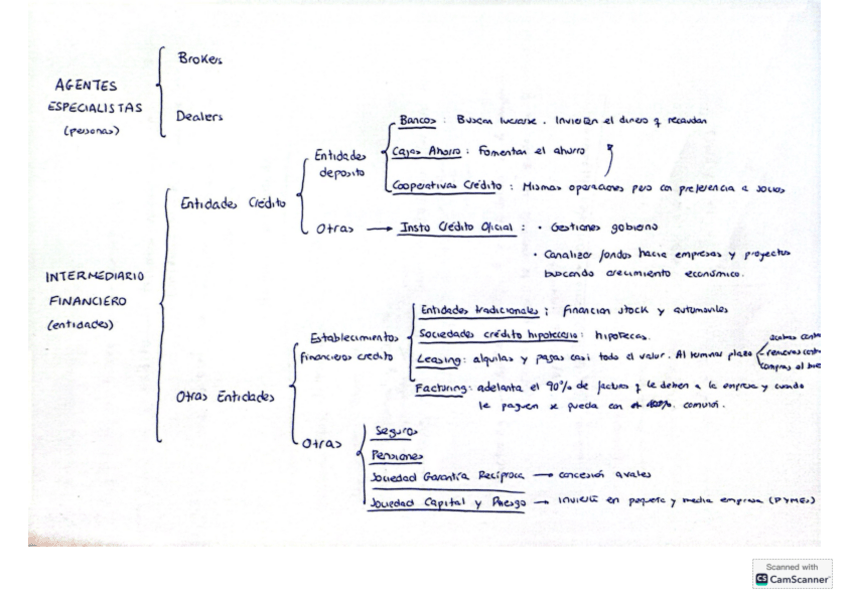 AGENTES
ESPECIALISTAS
(personas)
Brokers
Dealers
INTERMEDIARIO
FINANCIERO
(entidades)
Entidades Crédito
Entidades
deposito
Bancos : Buscan lucrarse. Invierten el dinero q recaudan
Cajas Ahorro : Fomentan el ahorro
Cooperativas Crédito : Mismas operaciones pero con preferencia a socios
Otras → Insto Crédito Oficial : • Gestiones gobierno
• Canalizar fondos hacia empresas y proyectos
buscando crecimiento económico.
Otras Entidades
Establecimientos
financieros crédito
Entidades tradicionales ; financian stock y automoviles
Sociedades crédito hipotecario : hipotecas.
Leasing : alquilas y pagas casi todo el valor. Al terminar plazo
acabas
renuevas
compras el
Factoring : adelanta el 90% de facturas q le deben a la empresa y cuando
le paguen se queda con comisión.
Otras
Seguros
Pensiones
Sociedad Garantía Recíproca → concesión avales
Sociedad Capital y Riesgo → invierten en pequeña y media empresa (PYMEs)
Scanned with
CS CamScanner